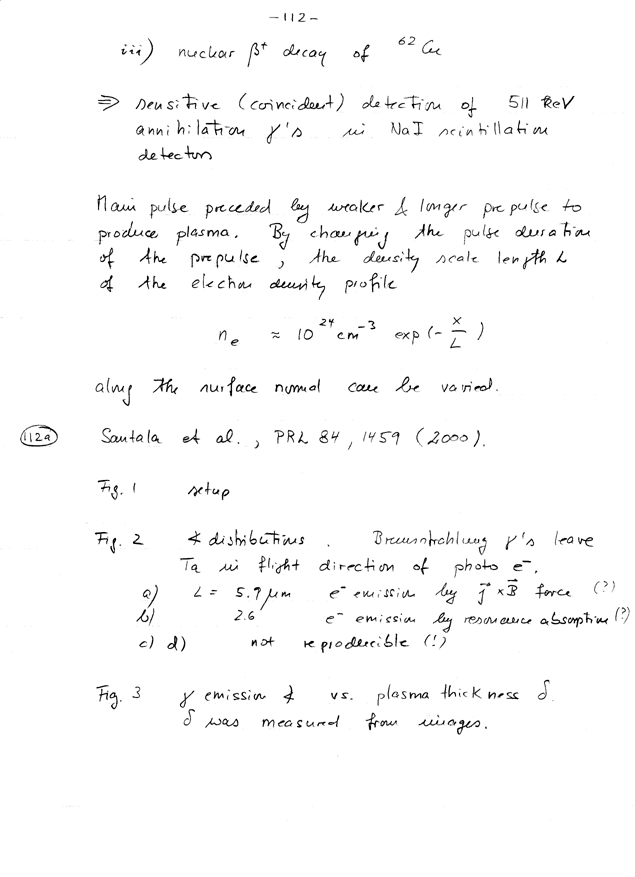 -112-
iii) nuclear β⁺ decay of ⁶²Cu
⇒ sensitive (coincident) detection of 511 keV
annihilation γ's in NaI scintillation
detectors
Main pulse preceded by weaker & longer prepulse to
produce plasma. By changing the pulse duration
of the prepulse, the density scale length L
of the electron density profile
nₑ ≈ 10²⁴ cm⁻³ exp(-x/L)
along the surface normal can be varied.
112a Santala et al., PRL 84, 1459 (2000).
Fig. 1 setup
Fig. 2 ∢ distributions. Bremsstrahlung γ's leave
Ta in flight direction of photo e⁻.
a) L = 5.7 μm e⁻ emission by j⃗ × B⃗ force (?)
b) 2.6 e⁻ emission by resonance absorption (?)
c) d) not reproducible (!)
Fig. 3 γ emission ∢ vs. plasma thickness δ.
δ was measured from images.